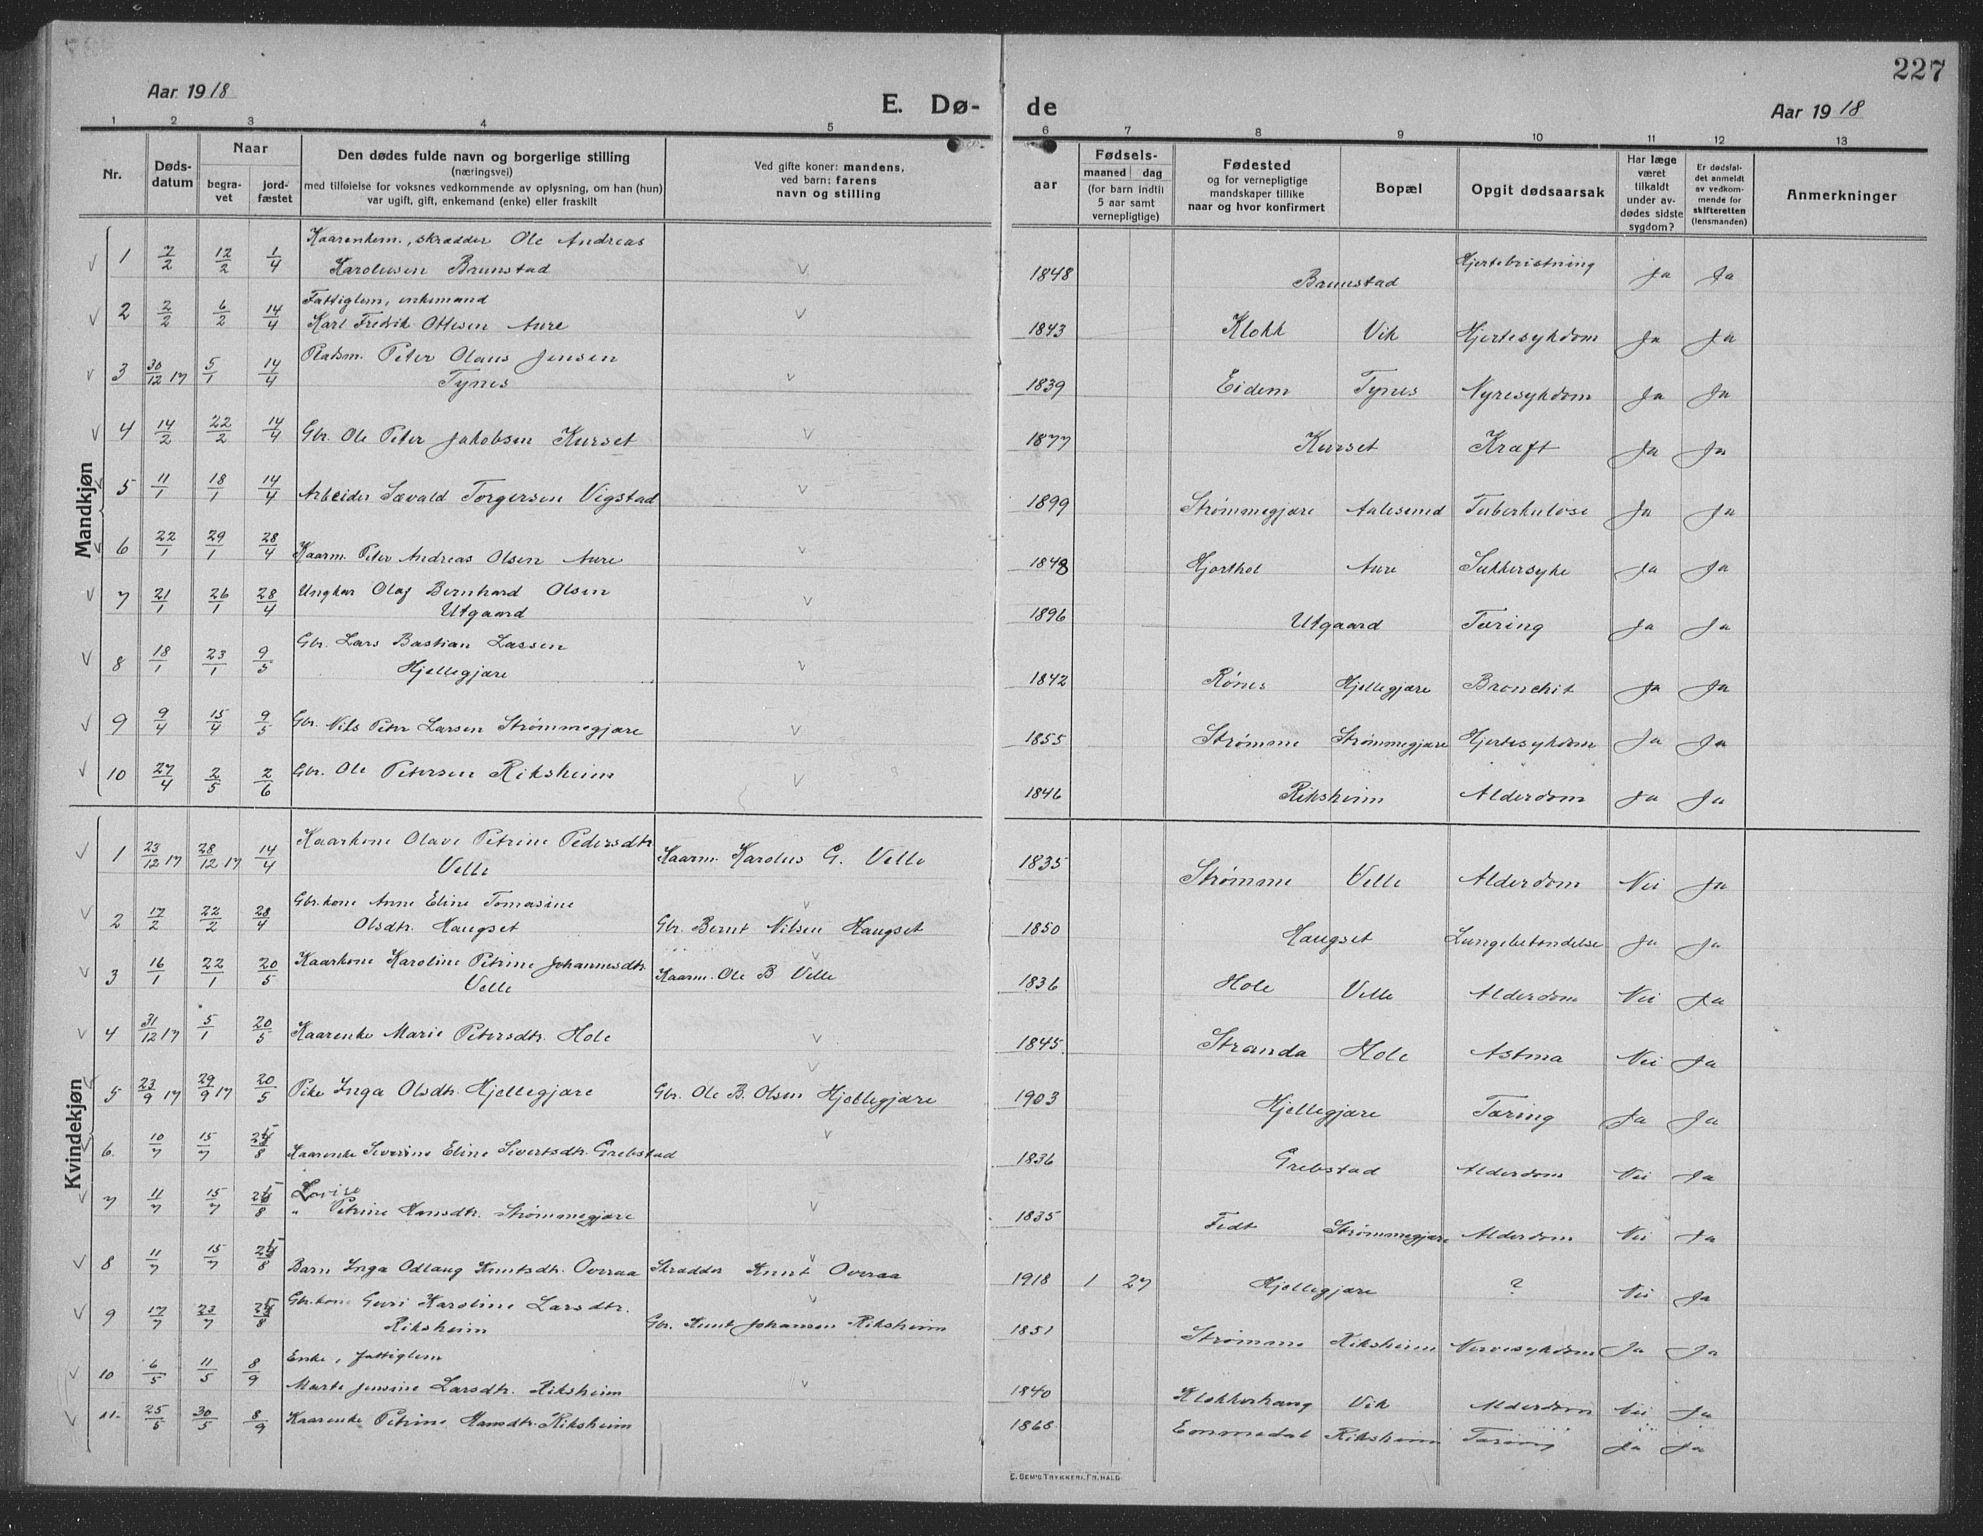 227
Aar 1918 E. Dø- de Aar 1918
1 2 3 4 5 6 7 8 9 10 11 12 13
Nr. Døds-datum Naar begra-vet jord-fæstet Den dødes fulde navn og borgerlige stilling (næringsvei) med tilføielse for voksnes vedkommende av oplysning, om han (hun) var ugift, gift, enkemand (enke) eller fraskilt Ved gifte koner: mandens, ved barn: farens navn og stilling Fødsels- aar maaned dag (for barn indtil 5 aar samt vernepligtige) Fødested og for vernepligtige mandskaper tillike naar og hvor konfirmert Bopæl Opgit dødsaarsak Har læge været tilkaldt under av-dødes sidste sygdom? Er dødsfal-det anmeldt av vedkom-mende for skifteretten (lensmanden) Anmerkninger
Mandkjøn
1 7/2 12/2 1/4 Kaarenkem., skrædder Ole Andreas Karolusen Brunstad v 1848 Brunstad Hjertebristning Ja Ja
2 2/2 6/2 14/4 Fattiglem, enkemand Karl Fredrik Ottesen Aure v 1843 Klokk Vik Hjertesykdom Ja Ja
3 30/12 17 5/1 14/4 Pladsm. Peter Olaus Jensen Tynes v 1839 Eidem Tynes Nyresykdom Ja Ja
4 14/2 22/2 14/4 Gbr. Ole Peter Jakobsen Kurset v 1877 Kurset Kræft Ja Ja
5 11/1 18/1 14/4 Arbeider Sævald Torgersen Vigstad v 1899 Strømmegjære Aalesund Tuberkulose Ja Ja
6 22/1 29/1 28/4 Kaarm. Peter Andreas Olsen Aure v 1848 Hjorthol Aure Sukkersyke Ja Ja
7 21/1 26/1 28/4 Ungkar Olaf Bernhard Olsen Utgaard v 1896 Utgaard Tæring Ja Ja
8 18/1 23/1 9/5 Gbr. Lars Bastian Lassen Hjellegjære v 1842 Rønes Hjellegjære Bronchit Ja Ja
9 9/4 15/4 9/5 Gbr. Nils Peter Larsen Strømmegjære v 1855 Strømme Strømmegjære Hjertesykdom Ja Ja
10 27/4 2/5 2/6 Gbr. Ole Petersen Riksheim v 1846 Riksheim Alderdom Ja Ja
Kvindekjøn
1 23/12 17 28/12 17 14/4 Kaarkone Olave Petrine Pedersdtr. Velle Kaarm. Karolus G. Velle 1835 Strømme Velle Alderdom Nei Ja
2 17/2 22/2 28/4 Gbr.kone Anne Eline Tomasine Olsdtr. Haugset Gbr. Bernt Nilsen Haugset 1850 Haugset Lungebetændelse Ja Ja
3 16/1 22/1 20/5 Kaarkone Karoline Petrine Johannesdtr. Velle Kaarm. Ole B Velle 1836 Hole Velle Alderdom Nei Ja
4 31/12 17 5/1 20/5 Kaarenke Marie Petersdtr. Hole v 1845 Stranda Hole Astma Nei Ja
5 23/9 17 29/9 17 20/5 Pike Inga Olsdtr. Hjellegjære Gbr. Ole B. Olsen Hjellegjære 1903 Hjellegjære Tæring Ja Ja
6. 10/7 15/7 25/8 Kaarenke Severine Eline Sivertsdtr. Grebstad v 1836 Grebstad Alderdom Nei Ja
7 11/7 15/7 25/8 " Lovise Petrine Hansdtr. Strømmegjære v 1835 Fedt Strømmegjære Alderdom Nei Ja
8 11/7 15/7 25/8 Barn Inga Odlaug Knutsdtr. Overaa Skrædder Knut Overaa 1918 1 27 Hjellegjære ? Nei Ja
9 17/7 23/7 25/8 Gbr.kone Guri Karoline Larsdtr. Riksheim Gbr. Knut Johansen Riksheim 1851 Strømme Riksheim Nervesykdom Ja Ja
10 6/5 11/5 8/9 Enke, fattiglem Marte Jensine Larsdtr. Riksheim v 1840 Klokkerhaug Vik Alderdom Nei Ja
11. 25/5 30/5 8/9 Kaarenke Petrine Hansdtr. Riksheim Emmedal Riksheim Tæring Ja Ja
E. SEM'S TRYKKERI, FR.HALD